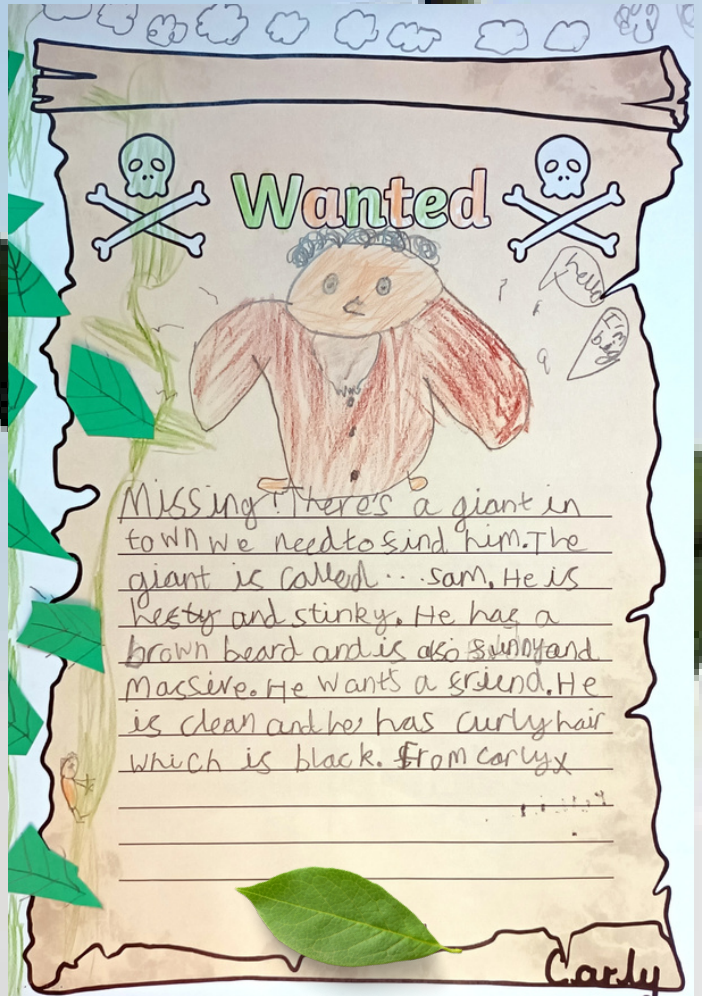 Wanted
hello
I'm big
Missing! There's a giant in
town we need to find him. The
giant is called... Sam. He is
hesty and stinky. He has a
brown beard and is also funny and
massive. He wants a friend. He
is clean and he has curly hair
which is black. From carly x
Carly